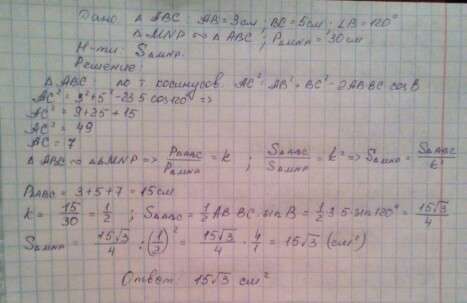 Дано: △ ABC: AB = 3см; BC = 5см; ∠B = 120°
△ MNP ∾ △ ABC; P△MNP = 30см
Н-ти: S△MNP.
Решение:
△ ABC: по т. косинусов: AC² = AB² + BC² - 2AB·BC cos B
AC² = 3² + 5² - 2·3·5 cos120° =>
AC² = 9 + 25 + 15
AC² = 49
AC = 7
△ ABC ∾ △ MNP => P△ABC/P△MNP = k ; S△ABC/S△MNP = k² => S△MNP = S△ABC/k²
P△ABC = 3 + 5 + 7 = 15см
k = 15/30 = 1/2 ; S△ABC = 1/2 AB·BC·sin B = 1/2·3·5·sin120° = 15√3/4
S△MNP = 15√3/4 : (1/2)² = 15√3/4 · 4/1 = 15√3 (см²)
Ответ: 15√3 см²